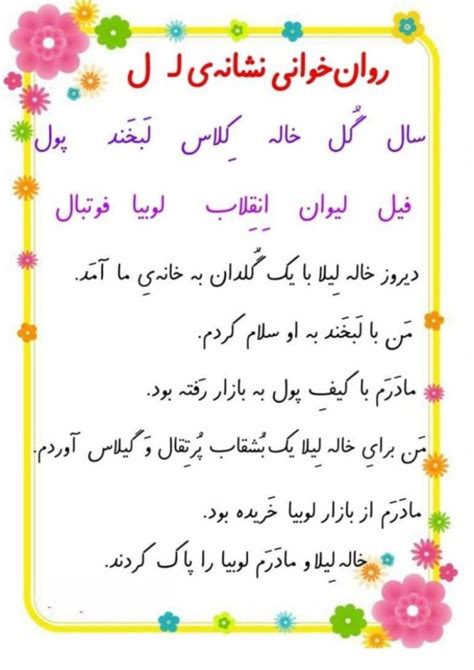 روان‌خوانی نشانه‌ی لـ ل
سال گُل خاله کِلاس لَبخَند پول
فیل لیوان اِنقِلاب لوبیا فوتبال
دیروز خاله لِیلا با یک گُلدان به خانه‌یِ ما آمَد.
مَن با لَبخَند به او سلام کردم.
مادَرَم با کیفِ پول به بازار رَفته بود.
مَن برایِ خاله لِیلا یک بُشقاب پُرتِقال وَ گیلاس آوردم.
مادَرَم از بازار لوبیا خَریده بود.
خاله لِیلا و مادَرَم لوبیا را پاک کردند.